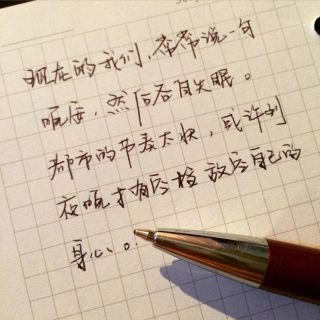 现在的我们，常常说一句
晚安，然后各自失眠。
都市的节奏太快，或许到
夜晚才有空检放空自己的
身心。